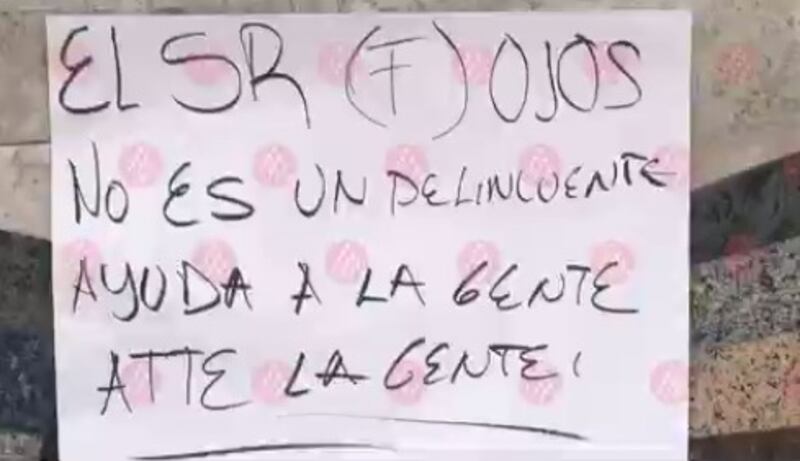 EL SR (F) OJOS
NO ES UN DELINCUENTE
AYUDA A LA GENTE
ATTE LA GENTE!